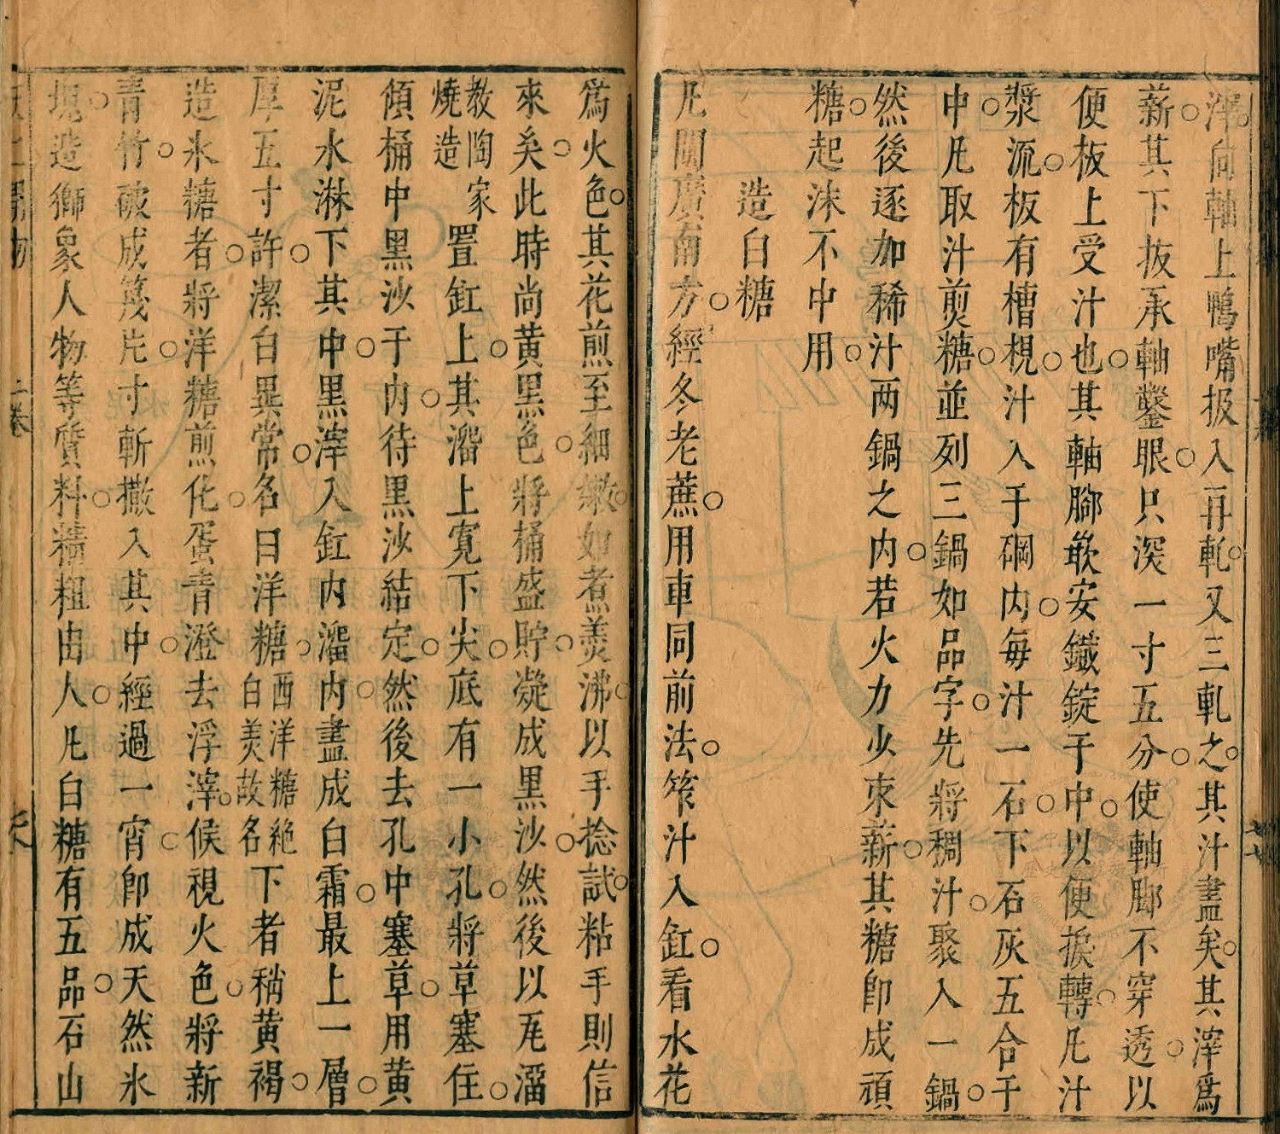 滓向軸上鴨嘴扱入再軋又三軋之其汁盡矣其滓爲
薪其下板承軸鑿眼只深一寸五分使軸脚不穿透以
便板上受汁也其軸脚嵌安鐵錠于中以便捩轉凡汁
漿流板有槽梘汁入于硐内每汁一石下石灰五合于
中凡取汁煎糖並列三鍋如品字先將稠汁聚入一鍋
然後逐加稀汁两鍋之内若火力少束薪其糖卽成頑
糖起沫不中用
造白糖
凡閩廣南方經冬老蔗用車同前法笮汁入缸看水花
爲火色其花煎至細嫩如煮羮沸以手捻試粘手則信
來矣此時尚黃黑色將桶盛貯凝成黑沙然後以瓦溜
教陶家燒造置缸上其溜上寛下尖底有一小孔將草塞住
傾桶中黑沙于内待黑沙結定然後去孔中塞草用黃
泥水淋下其中黑滓入缸内溜内盡成白霜最上一層
厚五寸許潔白異常名曰洋糖西洋糖絶白美故名下者稍黃褐
造氷糖者將洋糖煎化蛋青澄去浮滓候視火色將新
青竹破成篾片寸斬撒入其中經過一宵卽成天然氷
塊造獅象人物等質料精粗由人凡白糖有五品石山